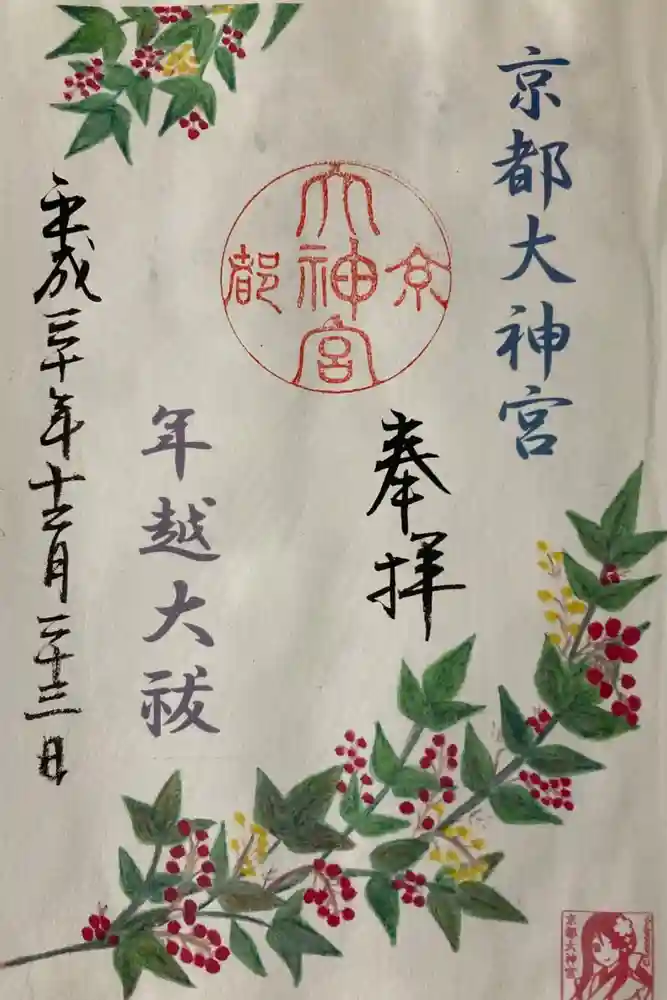 京都大神宮
京都
大神宮
奉拝
年越大祓
平成三十年十二月二十三日
京都大神宮